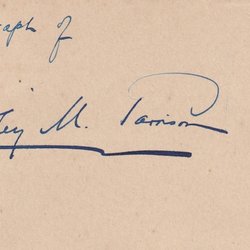 raph of
ley M. Parrison